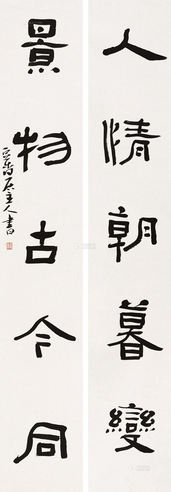 人情朝暮變
景物古今同
居主人書